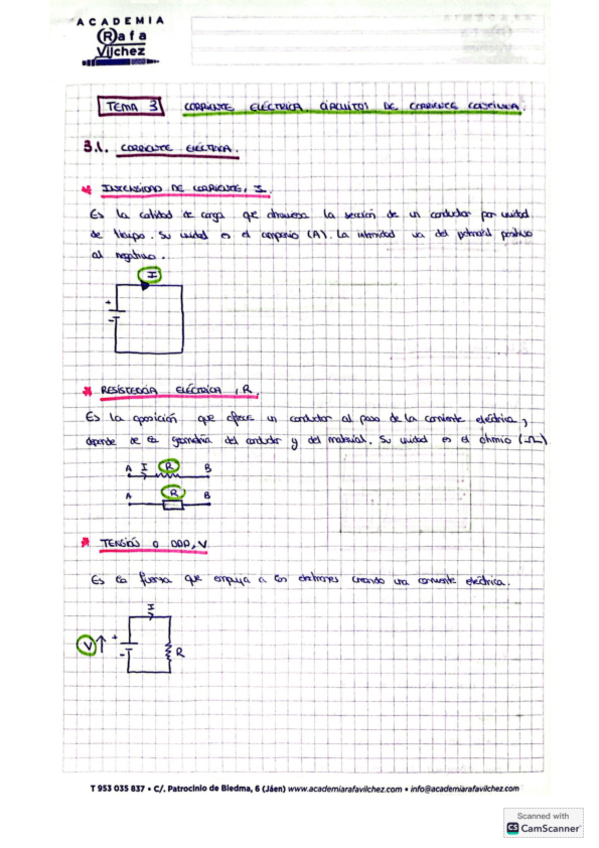 ACADEMIA
Rafa
Vílchez
TEMA 3 CORRIENTE ELÉCTRICA CIRCUITOS DE CORRIENTE CONTINUA.
3.1. CORRIENTE ELÉCTRICA.
* INTENSIDAD DE CORRIENTE, I.
Es la cantidad de carga que atraviesa la sección de un conductor por unidad
de tiempo. Su unidad es el amperio (A). La intensidad va del potencial positivo
al negativo.
I
+
-
* RESISTENCIA ELÉCTRICA, R.
Es la oposición que ofrece un conductor al paso de la corriente eléctrica,
depende de la geometría del conductor y del material. Su unidad es el ohmio (Ω)
A I R B
A R B
* TENSIÓN O DDP, V
Es la fuerza que empuja a los electrones creando una corriente eléctrica.
I
V ↑ +
-
R
T 953 035 837 • C/. Patrocinio de Biedma, 6 (Jáen) www.academiarafavilchez.com • info@academiarafavilchez.com
Scanned with
CS CamScanner